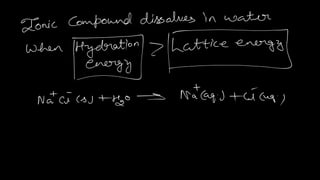 Ionic Compound dissolves in water
when Hydration energy > Lattice energy
Na⁺Cl⁻(s) + H₂O → Na⁺(aq.) + Cl⁻(aq.)